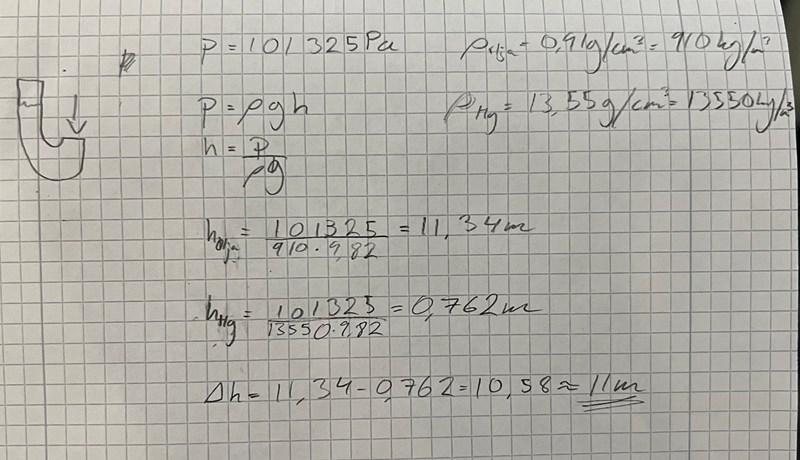 P = 101 325 Pa
ρolja = 0,91 g/cm³ = 910 kg/m³
P = ρgh
ρHg = 13,55 g/cm³ = 13550 kg/m³
h = P/ρg
holja = 101325/910·9,82 = 11,34 m
hHg = 101325/13550·9,82 = 0,762 m
Δh = 11,34 - 0,762 = 10,58 ≈ 11 m